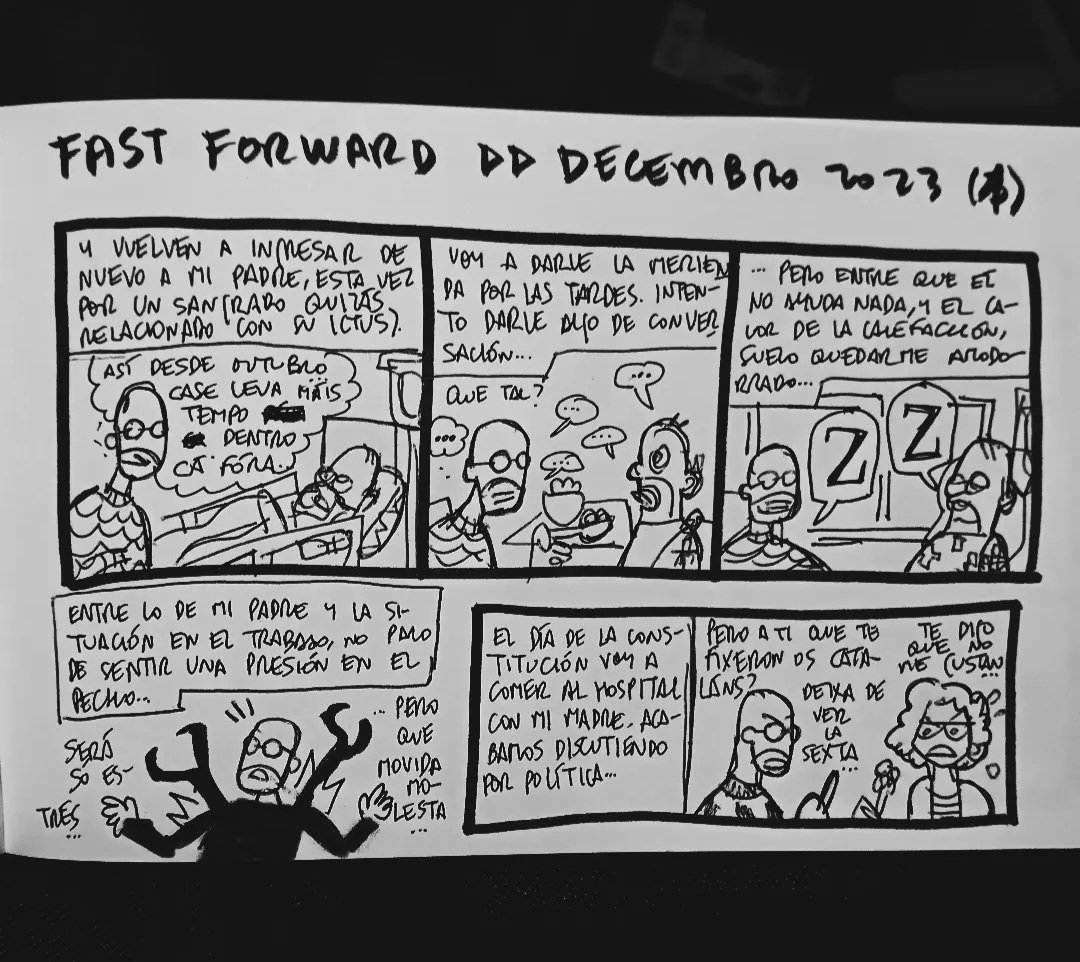 FAST FORWARD DD DECEMBRO 2023 (
Y VUELVEN A INGRESAR DE
NUEVO A MI PADRE, ESTA VEZ
POR UN SANGRADO QUIZÁS
RELACIONADO CON SU ICTUS).
ASÍ DESDE OUTUBRO
CASE LEVA MÁIS
TEMPO
DENTRO
CA FÓRA...
VOY A DARLE LA MERIEN
DA POR LAS TARDES. INTEN-
TO DARLE ALGO DE CONVER
SACIÓN...
QUE TAL?
...
...
...
...
...
... PERO ENTRE QUE ÉL
NO AYUDA NADA, Y EL CA-
LOR DE LA CALEFACCIÓN,
SUELO QUEDARME AMODO-
RRADO...
Z
Z
ENTRE LO DE MI PADRE Y LA SI-
TUACIÓN EN EL TRABAJO, NO PARO
DE SENTIR UNA PRESIÓN EN EL
PECHO...
SERÁ
SO ES-
TRÉS
...
... PERO
QUE
MOVIDA
MO-
LESTA
...
EL DÍA DE LA CONS-
TITUCIÓN VOY A
COMER AL HOSPITAL
CON MI MADRE. ACA-
BAMOS DISCUTIENDO
POR POLÍTICA...
PERO A TI QUE TE
FIXERON OS CATA-
LÁNS?
DEIXA DE
VER
LA
SEXTA
...
TE DIGO
QUE NO
ME GUSTAN